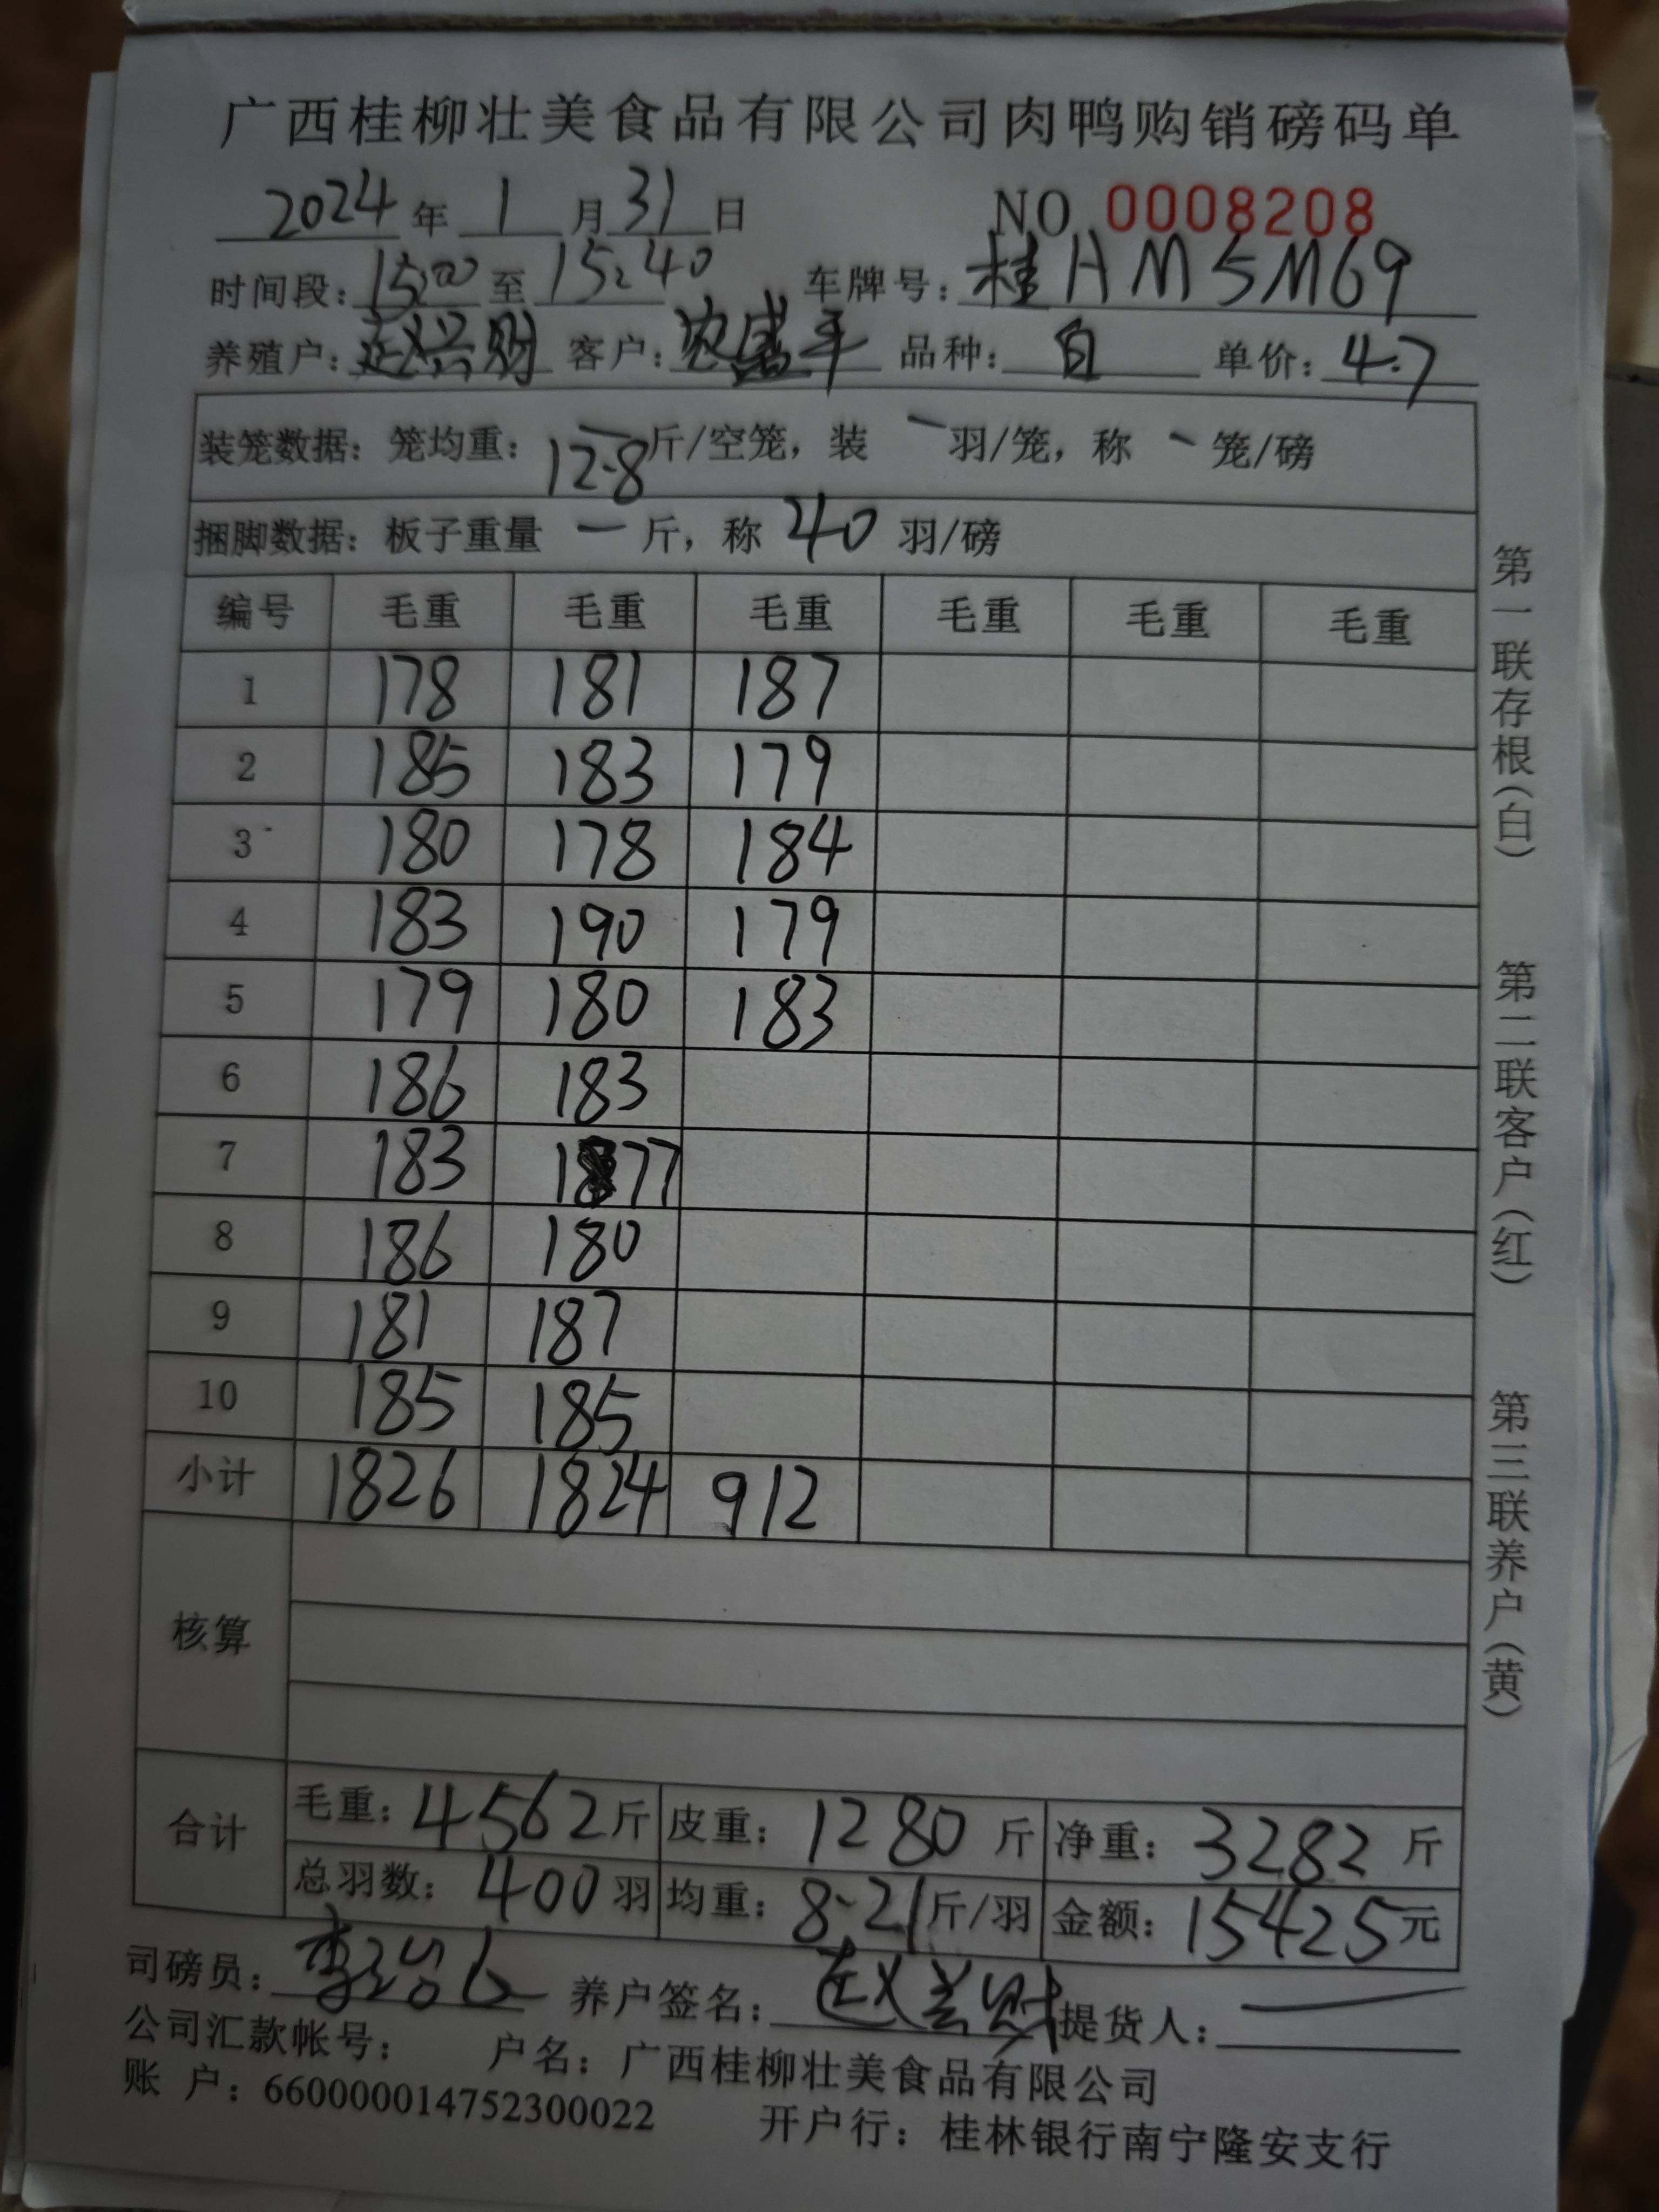 广西桂柳壮美食品有限公司肉鸭购销磅码单
2024年 1月31日 NO 0008208
时间段：15:00至15:40 车牌号：桂HM5M69
养殖户：赵兴财 客户： 品种：白 单价：4.7
装笼数据：笼均重：12.8斤/空笼，装 一 羽/笼，称 一 笼/磅
捆脚数据：板子重量 一 斤，称 40 羽/磅
编号 毛重 毛重 毛重 毛重 毛重 毛重
1 178 181 187
2 185 183 179
3 180 178 184
4 183 190 179
5 179 180 183
6 186 183
7 183 177
8 186 180
9 181 187
10 185 185
小计 1826 1824 912
核算
合计 毛重：4562斤 皮重：1280斤 净重：3282斤
总羽数：400羽 均重：8.21斤/羽 金额：15425元
司磅员： 养户签名：赵兴财 提货人：
公司汇款帐号： 户名：广西桂柳壮美食品有限公司
账 户：660000014752300022 开户行：桂林银行南宁隆安支行
第一联存根（白） 第二联客户（红） 第三联养户（黄）